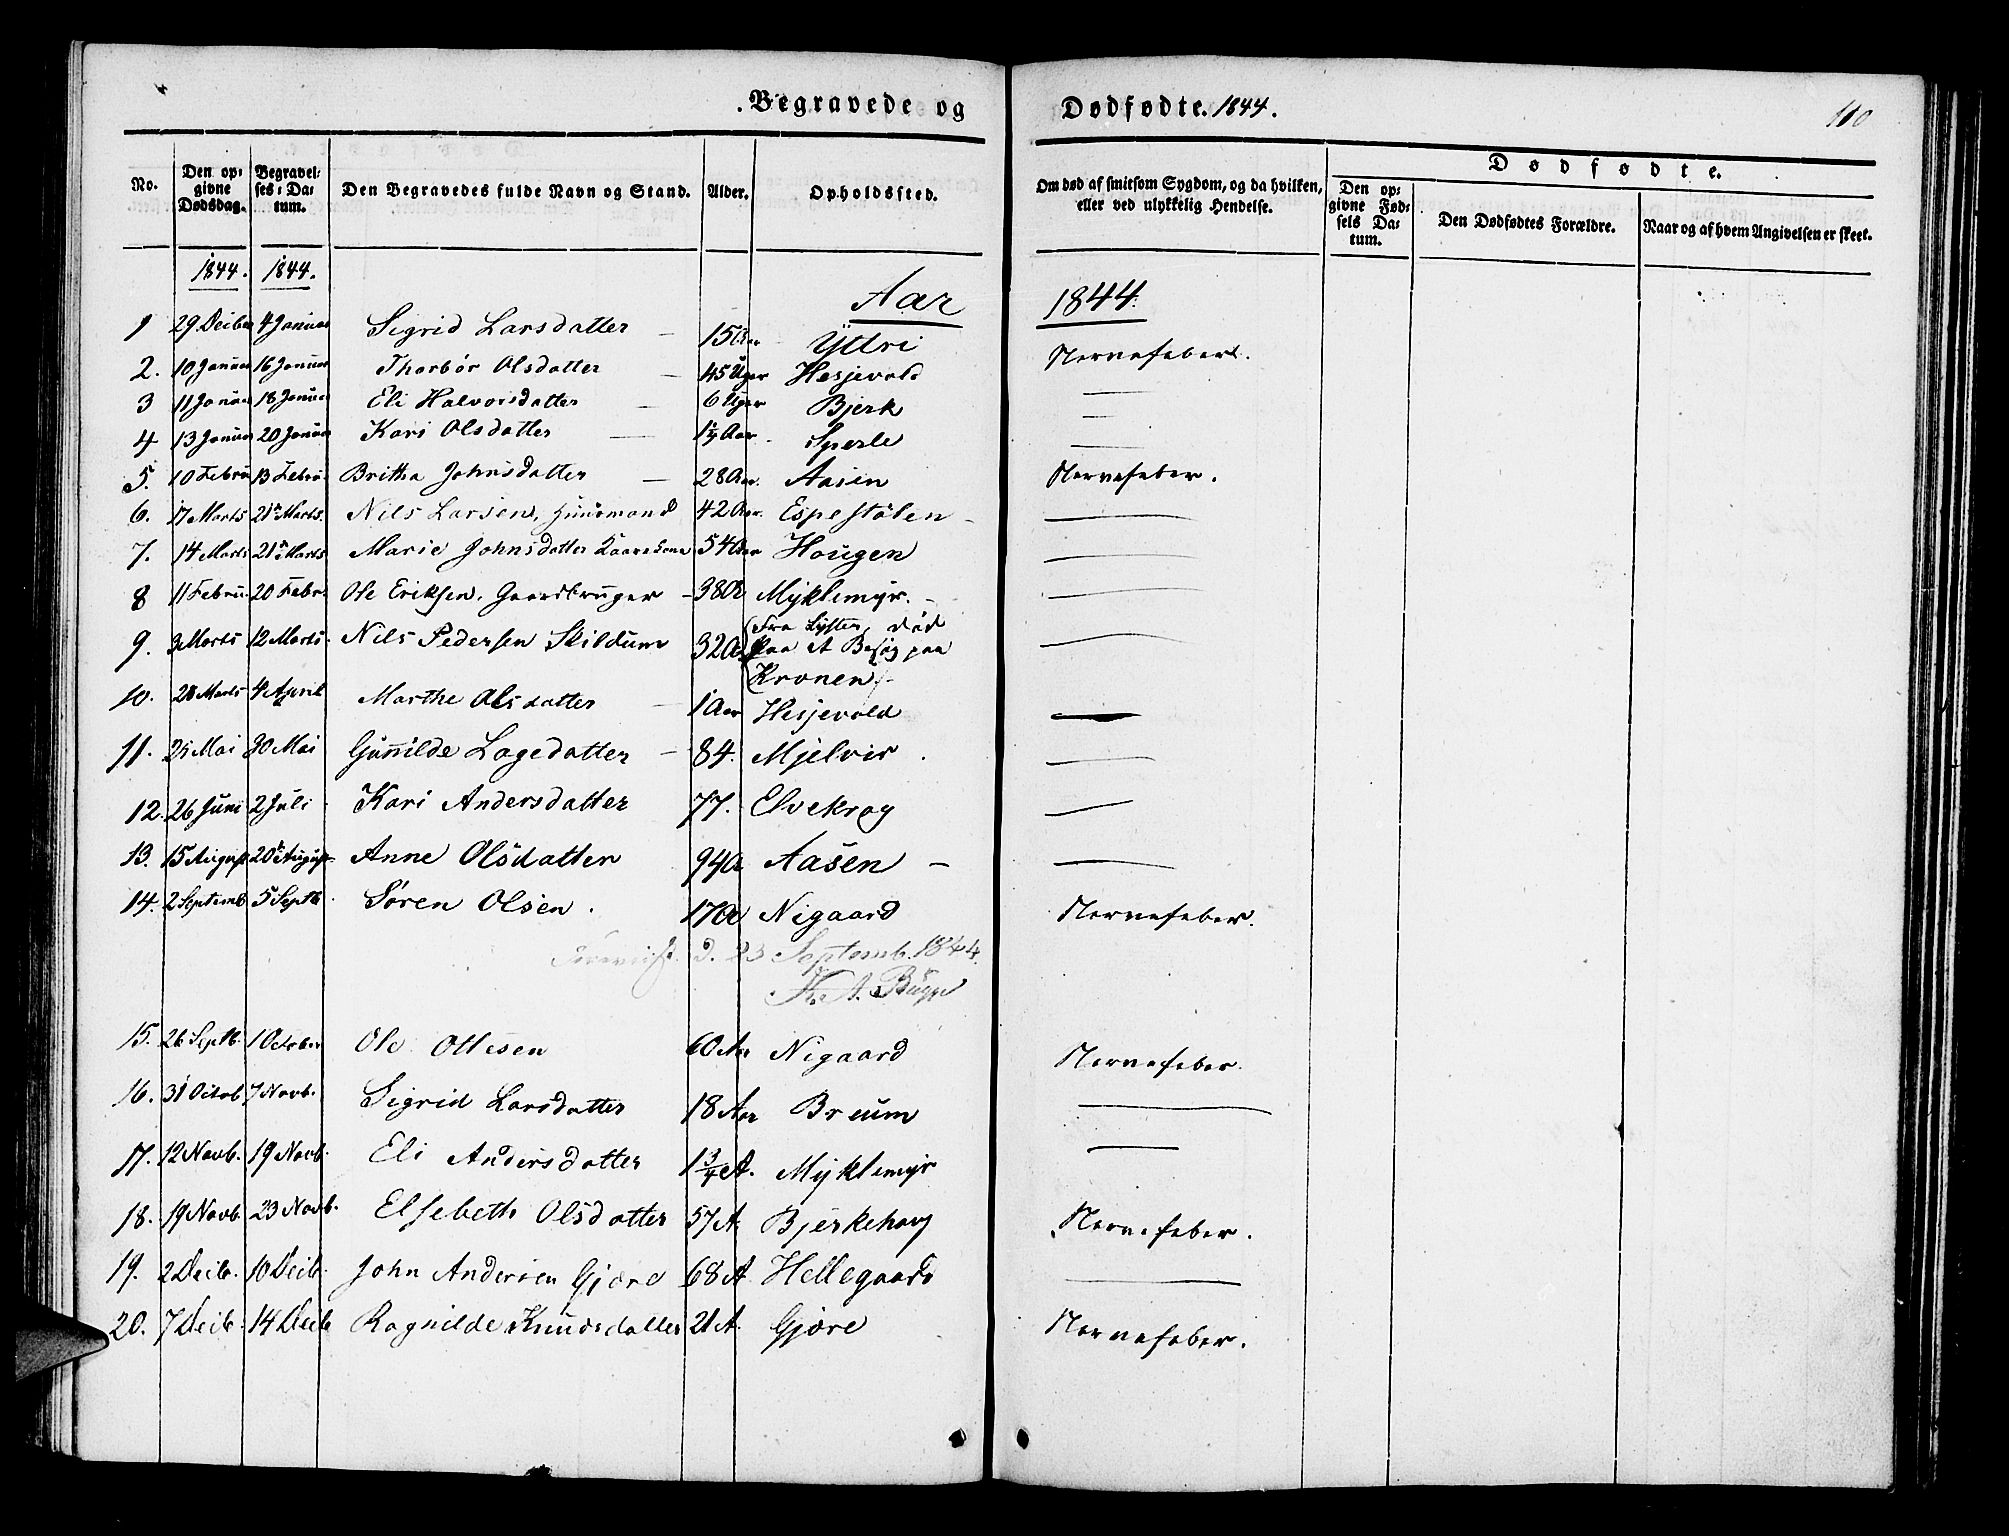 Begravede og Dødfødte. 1844. 110
No. Den opgivne Dødsdag. Begravelses-Datum. Den Begravedes fulde Navn og Stand. Alder. Opholdssted. Om død af smitsom Sygdom, og da hvilken, eller ved ulykkelig Hendelse. Dødfødte.
Den opgivne Fødsels Datum. Den Dødfødtes Forældre. Naar og af hvem Angivelsen er skeet.
1844. 1844. Aar 1844.
1 29 Decbr 4 Januar Sigrid Larsdatter — 15 Aar Yttri Nervefeber.
2. 10 Januar 16 Januar Thorbør Olsdatter — 45 Uger Hesjevold —
3 11 Januar 18 Januar Eli Halvorsdatter — 6 Uger Bjerk —
4 13 Januar 20 Januar Kari Olsdatter — 1½ Aar Sperle —
5. 10 Febru 13 Febru. Britha Johnsdatter — 28 Aar. Aasen Nervefeber.
6. 17 Marts 21 Marts. Nils Larsen, Huusmand 42 Aar. Espestølen — —
7. 14 Marts 21 Marts Marie Johnsdatter Kaarekone 54 Aar Hougen —
8 11 Febru. 20 Febr. Ole Eriksen, Gaardbruger — 38 A Myklemyr. — —
9. 3 Marts 12 Marts. Nils Pedersen Skildum 32 A (Fra Lyster, død paa et Besøg paa Kronen. —
10. 28 Marts 4 April Marthe Olsdatter — 1 Aar Hesjevold —
11. 25 Mai 30 Mai Gunnilde Lagedatter — 84. Mjelvir. —
12. 26 Juni 2 Juli Kari Andersdatter 77. Elvekrog —
13. 15 August 20 August Anne Olsdatter 94 A Aasen — —
14. 2 Septemb 5 Septb. Søren Olsen. 17 A Nigaard Nervefeber.
Foreviist. d. 23 Septemb. 1844.
K. A. Bugge
15. 26 Septb. 1 October Ole Ottesen 60 Aar Nigaard Nervefeber.
16. 31 Octob 7 Novb. Sigrid Larsdatter 18 Aar Breum —
17. 12 Novb. 19 Novb. Eli Andersdatter 1¾ A. Myklemyr —
18. 19 Novb. 23 Novb. Elsebeth Olsdatter 57 A. Bjerkehoug Nervefeber.
19. 2 Decb. 10 Decb. John Andersen Gjøre 68 A. Hellegaard —
20. 7 Decb. 14 Decb Ragnilde Knudsdatter 21 A. Gjøre Nervefeber.